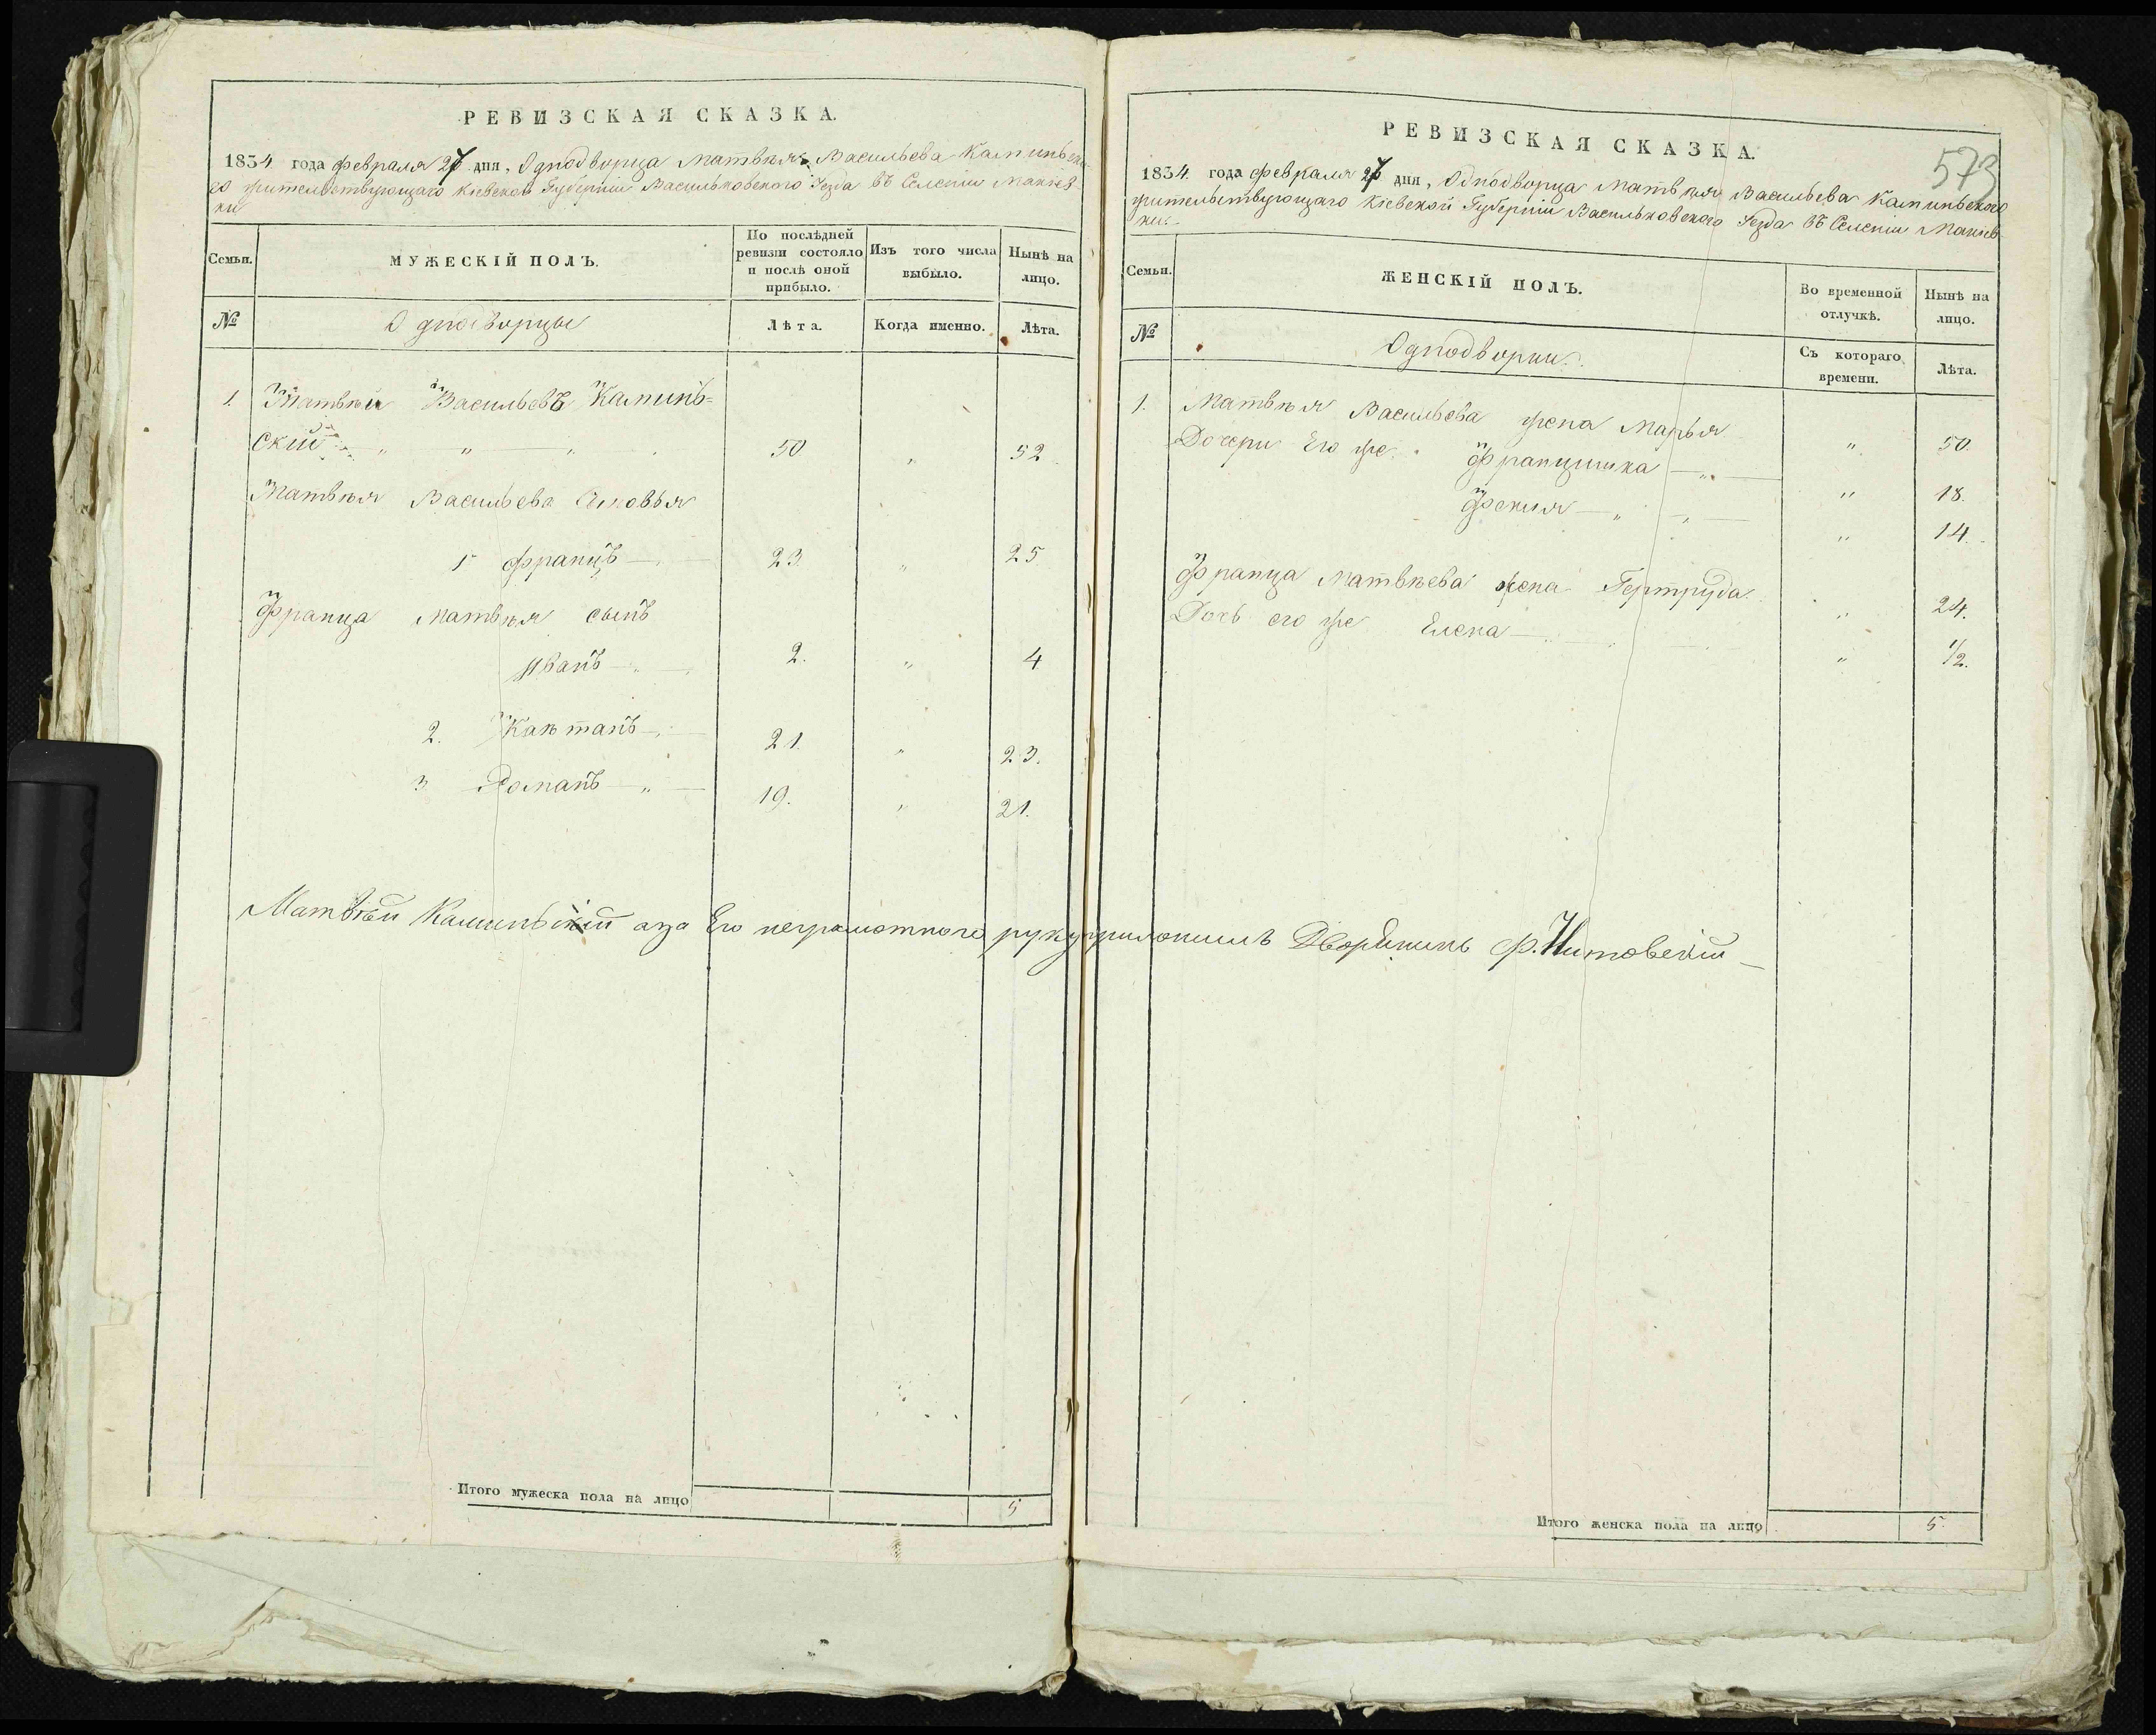 РЕВИЗСКАЯ СКАЗКА.
1834 года февраля 27 дня, Однодворца Матвѣя Васильева Каминьска-
го жительствующаго Кіевской Губерніи Васильковского Уезда въ Селеніи Макіев-
ки
Семьи.
МУЖЕСКІЙ ПОЛЪ.
По послѣдней ревизіи состояло и послѣ оной прибыло.
Изъ того числа выбыло.
Нынѣ на лицо.
№
Однодворцы
Лѣта.
Когда именно.
Лѣта.
1. Матвѣй Васильевъ Каминь=
ский — „ „ „ 50 „ 52
Матвѣя Васильева Сыновья
1 Францъ — 23. „ 25
Франца Матвѣя сынъ
Иванъ — 2. „ 4
2. Каѣтанъ — 21. „ 23.
3 Романъ — „ — 19. „ 21.
Матвѣй Каминьскій а за Его неграмотного руку приложилъ Дворянинъ Ф. Нитовскій —
Итого мужеска пола на лицо 5
573
РЕВИЗСКАЯ СКАЗКА.
1834 года февраля 27 дня, Однодворца Матвѣя Васильева Каминьского
жительствующаго Кіевской Губерніи Васильковского Уезда въ Селеніи Макіев-
ки.
Семьи.
ЖЕНСКІЙ ПОЛЪ.
Во временной отлучкѣ.
Нынѣ на лицо.
№
Однодворки.
Съ котораго времени.
Лѣта.
1. Матвѣя Васильева жена Марья „ 50.
Дочери Его же Францишка — „ — „ 18.
Фекля — „ — „ 14.
Франца Матвѣева жена Гертруда „ 24.
Дочь его же Елена — „ 1/2.
Итого женска пола на лицо 5.